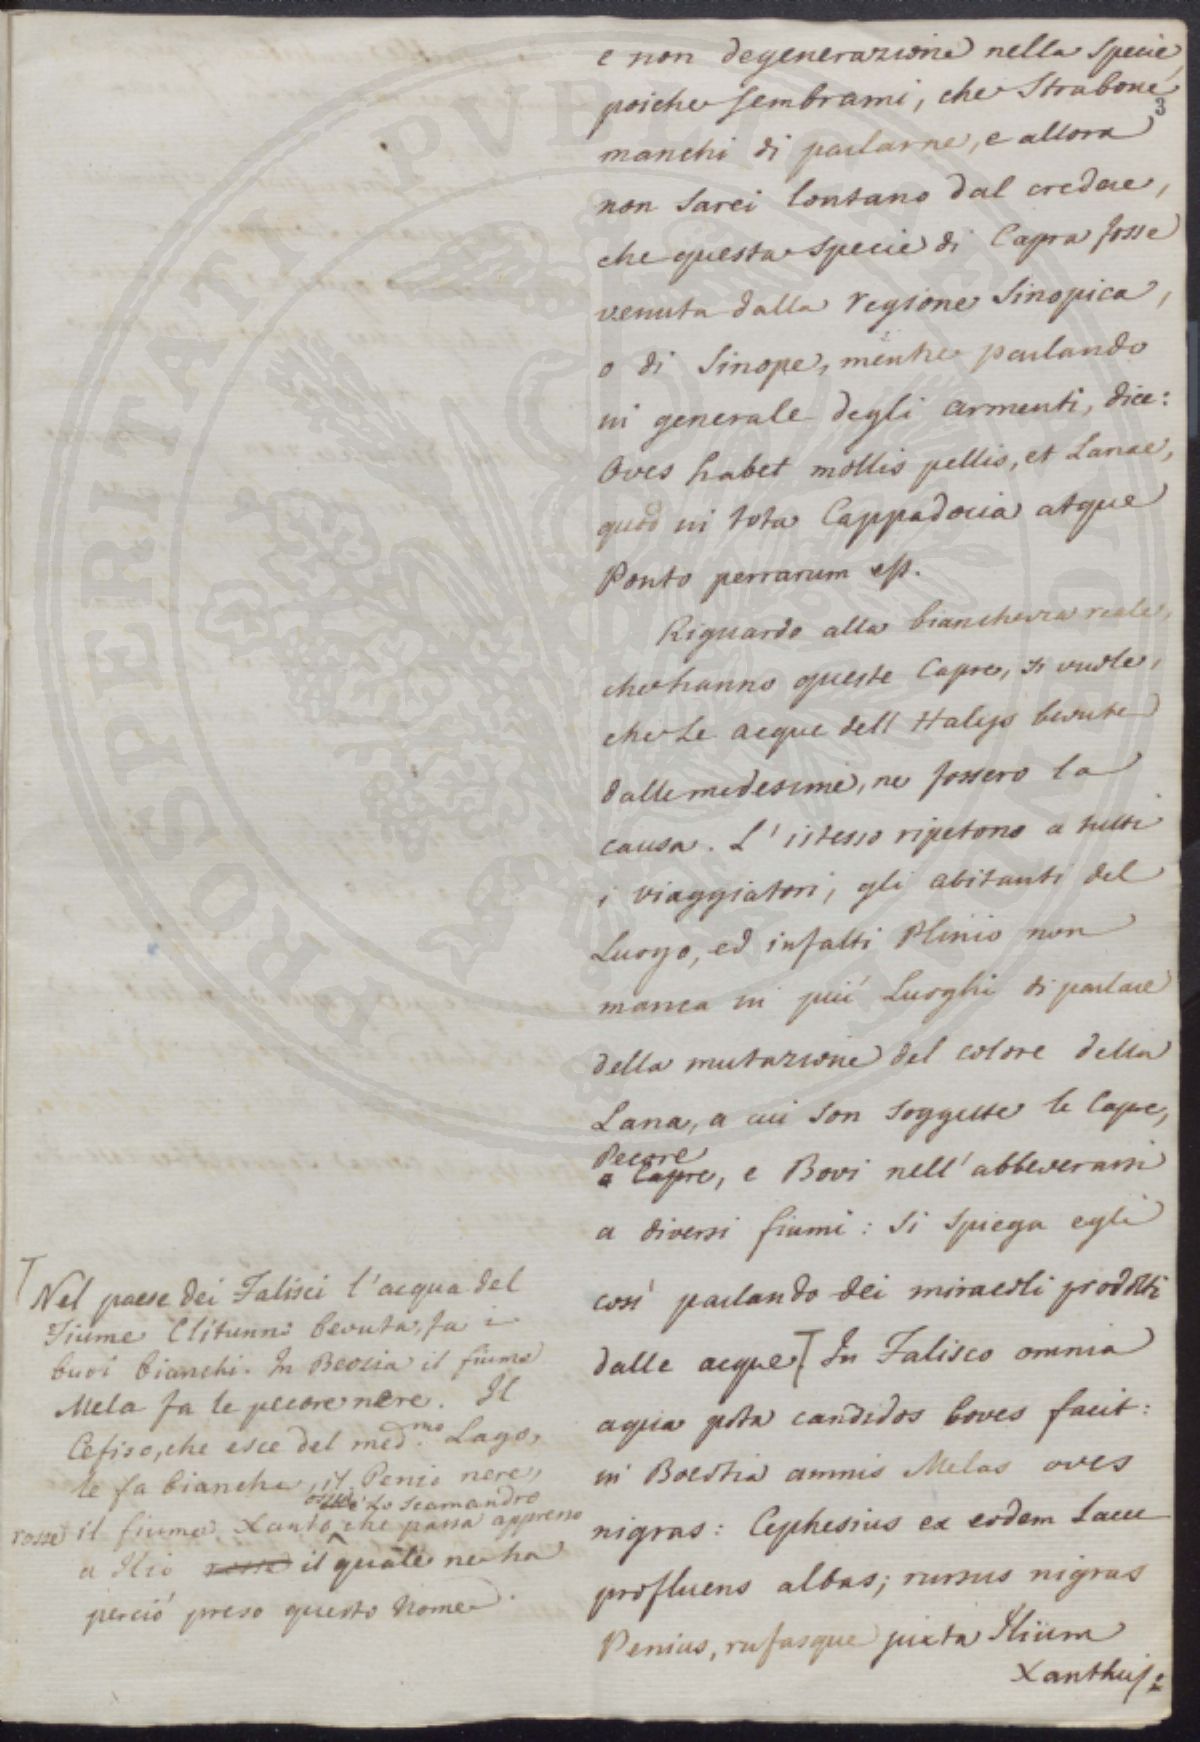 e non degenerazione nella Specie,
poiche sembrami, che Strabone
3
manchi di parlarne, e allora
non sarei lontano dal credere,
che questa Specie di Capra fosse
venuta dalla regione Sinopica,
o di Sinope, mentre parlando
in generale degli armenti, dice:
Oves habet mollis pellis, et Lanae,
quod in tota Cappadocia atque
Ponto perrarum est.
Riguardo alla bianchezza reale,
che hanno queste Capre, si vuole,
che Le acque dell Halys bevute
dalle medesime, ne fossero la
causa. L' istesso ripetono a tutti
i viaggiatori, gli abitanti del
Luogo, ed infatti Plinio non
manca in più Luoghi di parlare
della mutazione del colore della
Lana, a cui son soggette le Capre,
Pecore
e Capre, e Bovi nell' abbeverarsi
a diversi fiumi: Si spiega egli
così parlando dei miracoli prodotti
dalle acque In Falisco omnia
aqua pota candidos boves facit:
in Boeotia amnis Melas oves
nigras: Cephesius ex eodem Lacu
profluens albas; rursus nigras
Penius, rufasque juxta Ilium
Xanthus:
Nel paese dei Falisci l'acqua del
Fiume Clitunno bevuta, fa i
buoi bianchi. In Beozia il fiume
Mela fa le pecore nere. Il
Cefiso, che esce dal med.mo Lago,
le fa bianche, il Penio nere,
ossia Lo Scamandro
rosse il fiume Xanto che passa appresso
a Ilio rosse il quale ne ha
perciò preso questo Nome.